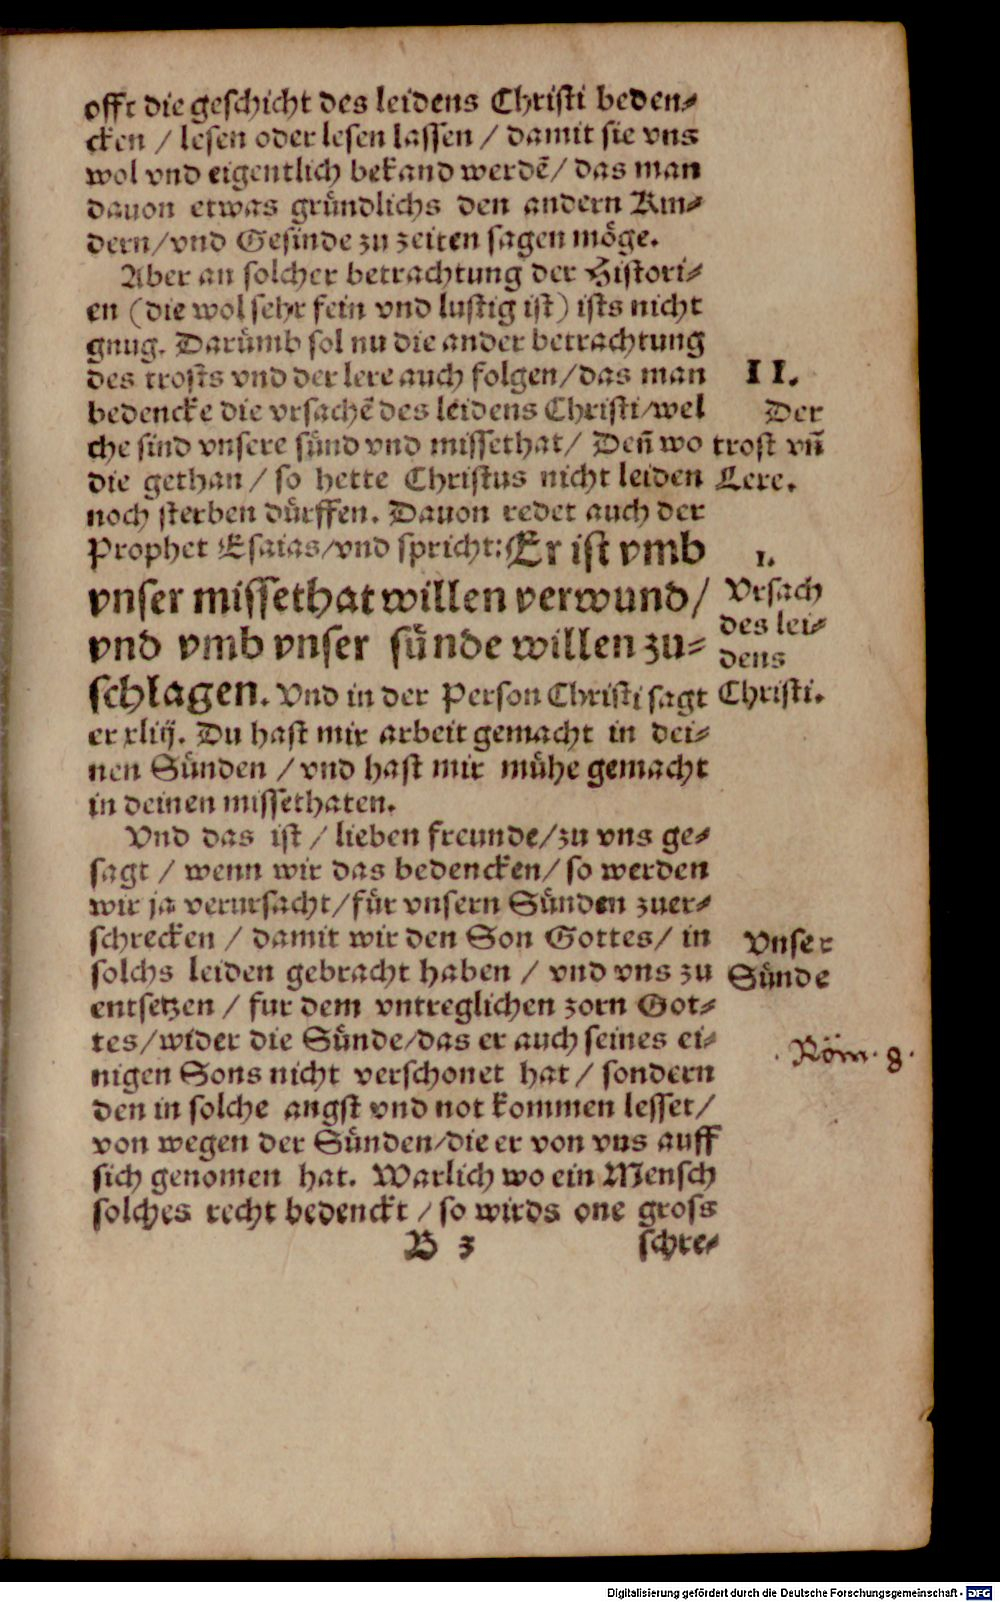 offt die geschicht des leidens Christi beden-
cken / lesen oder lesen lassen / damit sie vns
wol vnd eigentlich bekand werdẽ / das man
dauon etwas gruͤndlichs den andern Kin-
dern / vnd Gesinde zu zeiten sagen moͤge.
Aber an solcher betrachtung der Histori-
en (die wol sehr fein vnd lustig ist) ists nicht
gnug. Daruͤmb sol nu die ander betrachtung
des trosts vnd der lere auch folgen / das man
bedencke die vrsachẽ des leidens Christi / wel
che sind vnsere suͤnd vnd missethat / Deñ wo
die gethan / so hette Christus nicht leiden
noch sterben duͤrffen. Dauon redet auch der
Prophet Esaias / vnd spricht: Er ist vmb
vnser missethat willen verwund /
vnd vmb vnser suͤnde willen zu-
schlagen. Vnd in der Person Christi sagt
er xliij. Du hast mir arbeit gemacht in dei-
nen Suͤnden / vnd hast mir muͤhe gemacht
in deinen missethaten.
Vnd das ist / lieben freunde / zu vns ge-
sagt / wenn wir das bedencken / so werden
wir ja verursacht / fuͤr vnsern Suͤnden zuer-
schrecken / damit wir den Son Gottes / in
solchs leiden gebracht haben / vnd vns zu
entsetzen / fur dem vntreglichen zorn Got-
tes / wider die Suͤnde / das er auch seines ei-
nigen Sons nicht verschonet hat / sondern
den in solche angst vnd not kommen lesset /
von wegen der Suͤnden / die er von vns auff
sich genomen hat. Warlich wo ein Mensch
solches recht bedenckt / so wirds one gross
B 3 schre-
II.
Der
trost vñ
Lere.
1.
Vrsach
des lei-
dens
Christi.
Vnser
Suͤnde
. Röm. 8.
Digitalisierung gefördert durch die Deutsche Forschungsgemeinschaft - DFG